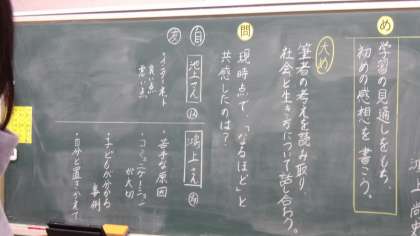 め
学習の見通しをもち、
初めの感想を書こう。
大め
筆者の考えを読み取り、
社会と生き方について話し合う。
問
現時点で、「なるほど」と
共感したのは?
自
池上さん
・インターネット
良い点
悪い点
鴻上さん
・苦手な原因
・コミュニケーション
が大切
・子どもが分かる
事例
・自分と置きかえて